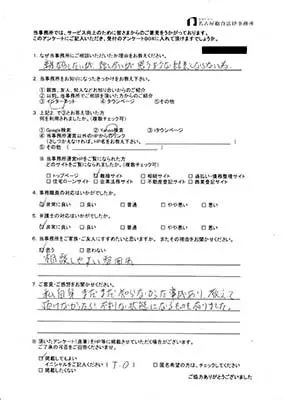 名古屋総合法律事務所
当事務所では、サービス向上のために皆さまからのご意見をうかがっております。
このアンケートにご記入いただき、受付のアンケートBOXに入れて頂けますでしょうか。
1. なぜ当事務所にご相談いただいたか理由をお答えください。
離婚したいが、話し合いが思うような結果にならない為
2. 当事務所をお知りになったきっかけをお答え下さい。
①親族、友人、知人などお知り合いからのご紹介
②以前、当事務所でご相談を頂いた方からのご紹介
③インターネット ④タウンページ ⑤その他
3. 上記2.で③とお答え頂いた方
何を利用されましたか。(複数チェック可)
①Google検索 ②Yahoo検索 ③iタウンページ
④当事務所運営以外のHPからのリンク
(さしつかえなければ、HP名をお教え下さい。)
⑤その他( )
※ 当事務所運営HPをご覧になられた方
どのサイトをご覧になられましたか。(複数チェック可)
□トップページ □離婚サイト □相続サイト □過払い・債務整理サイト
□住宅ローンサイト □企業法務サイト □不動産登記サイト □商業登記サイト
4. 事務職員の対応はいかがでしたか。
□非常に良い □良い □普通 □やや悪い □悪い
5. 弁護士の対応はいかがでしたか。
□非常に良い □良い □普通 □やや悪い □悪い
6. 当事務所をご家族・ご友人にすすめたいと思いますか。またその理由をお聞かせください。
□思う □思わない
相談しやすい雰囲気
7. ご意見・ご感想をお聞かせください。
私自身まだまだ知らなかった事があり、教えて
頂けなかったら不利な状態になるものもありました。
※ 頂いたアンケート(直筆)をHP等に掲載させていただく場合がございます。
ご了承の可否をご回答くださいませ。
□掲載してもよい
イニシャルをご記入ください( T.O ) □匿名希望の方は、チェックしてください
□掲載したくない
ご協力ありがとうございました